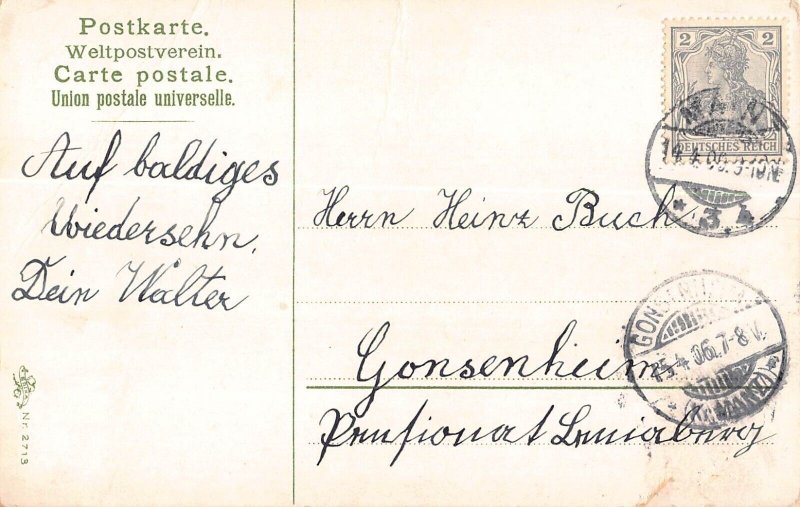 Postkarte.
Weltpostverein.
Carte postale.
Union postale universelle.
Auf baldiges
Wiedersehn.
Dein Walter
Nr. 2713
2 2
DEUTSCHES REICH
MAINZ
14.4.06.9-10N.
* 3 *
Herrn Heinz Buch
GONSENHEIM
15.4.06.7-8V.
* (Kr. MAINZ) *
Gonsenheim
Pensionat Leniaberg